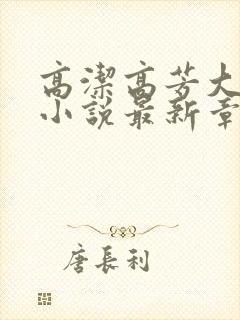 高潔高芳大
小說最新章
唐長利